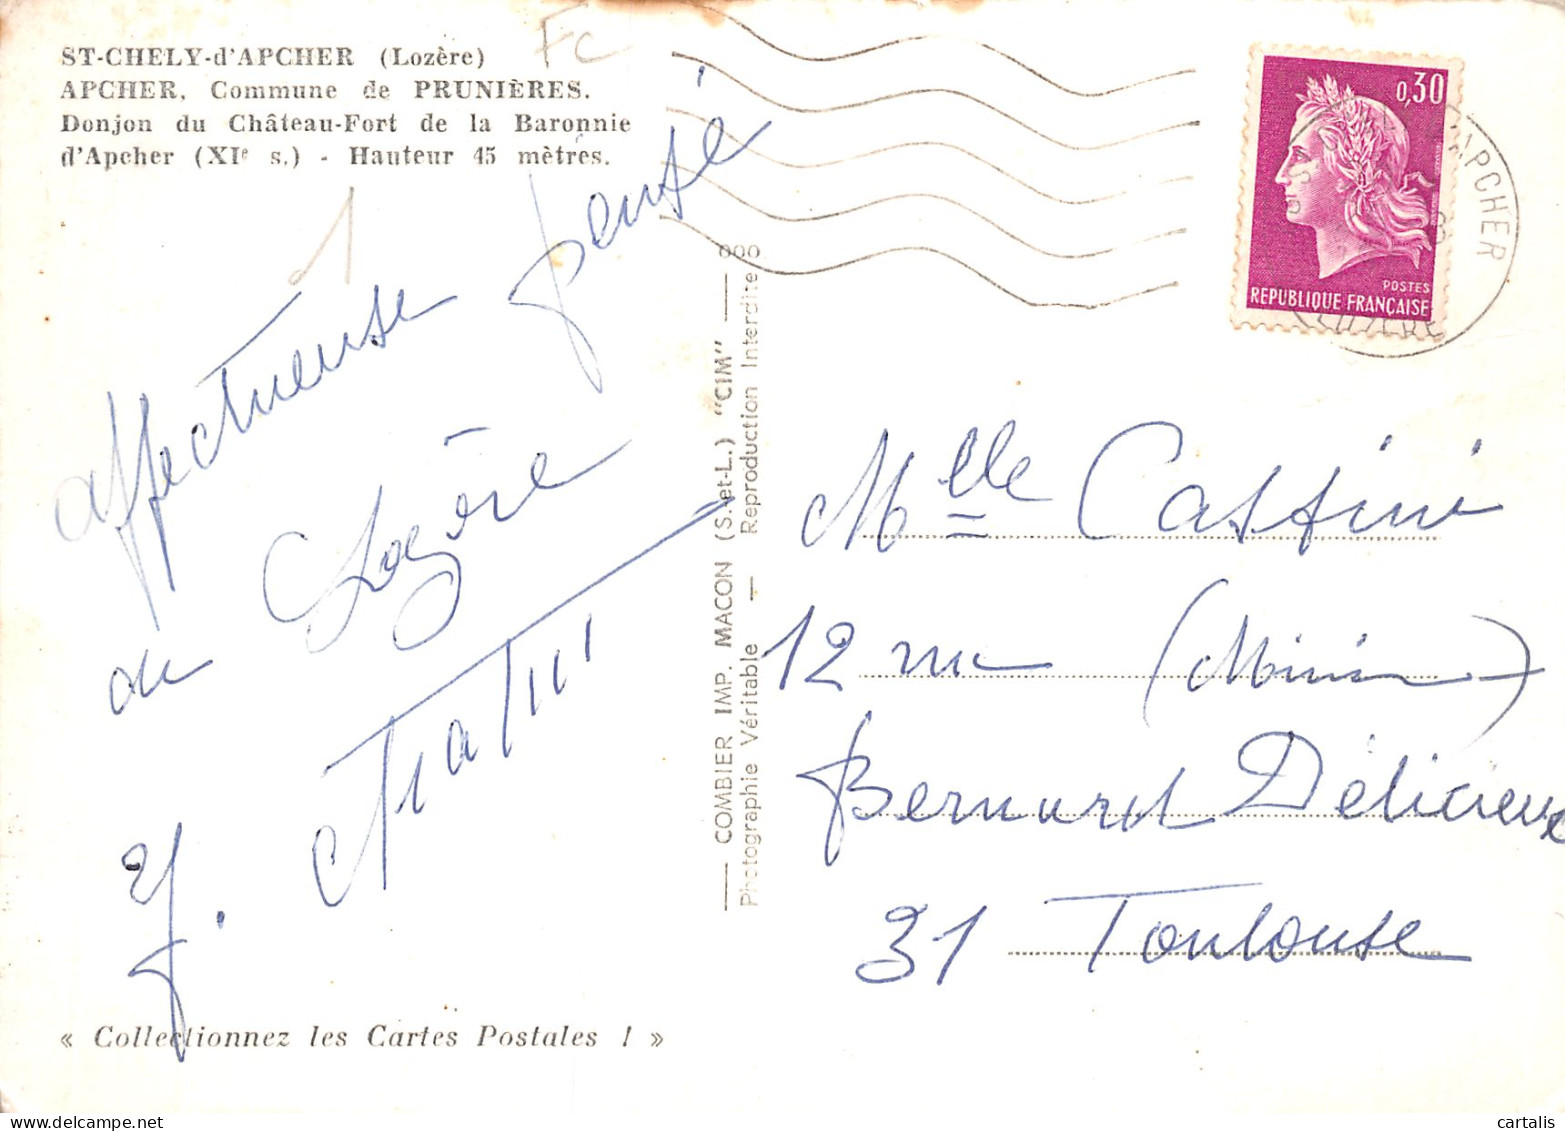 ST-CHELY-d'APCHER (Lozère)
APCHER, Commune de PRUNIÈRES.
Donjon du Château-Fort de la Baronnie
d'Apcher (XIe s.) - Hauteur 45 mètres.
Fc
1
0,30
POSTES
REPUBLIQUE FRANÇAISE
APCHER
LOZERE
affectueuse pensé
du Lozère
« Collectionnez les Cartes Postales ! »
COMBIER IMP. MACON (S.-et-L.) "CIM"
Photographie Véritable — Reproduction Interdite
Mlle Cassini
12 rue (Minim)
Bernard Délicieux
31 Toulouse
cartalis
delcampe.net